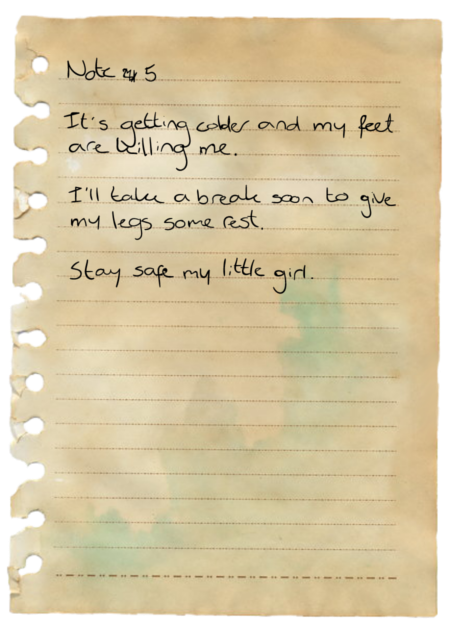 Note 5
It's getting colder and my feet
are killing me.
I'll take a break soon to give
my legs some rest.
Stay safe my little girl.